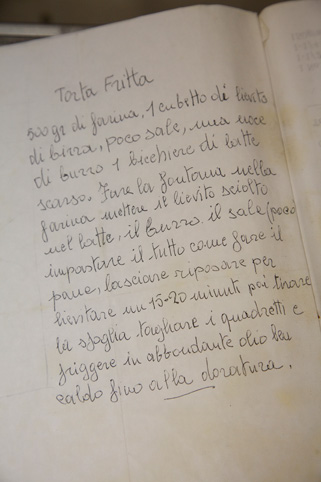 Torta Fritta
500 gr di farina, 1 cubetto di lievito
di birra, poco sale, una noce
di burro 1 bicchiere di latte
scarso. Fare la fontana nella
farina mettere il lievito sciolto
nel latte, il burro il sale (poco
impastare il tutto come fare il
pane, lasciare riposare per
lievitare un 15-20 minuti poi tirare
la sfoglia tagliare i quadretti e
friggere in abbondante olio ben
caldo fino alla doratura.